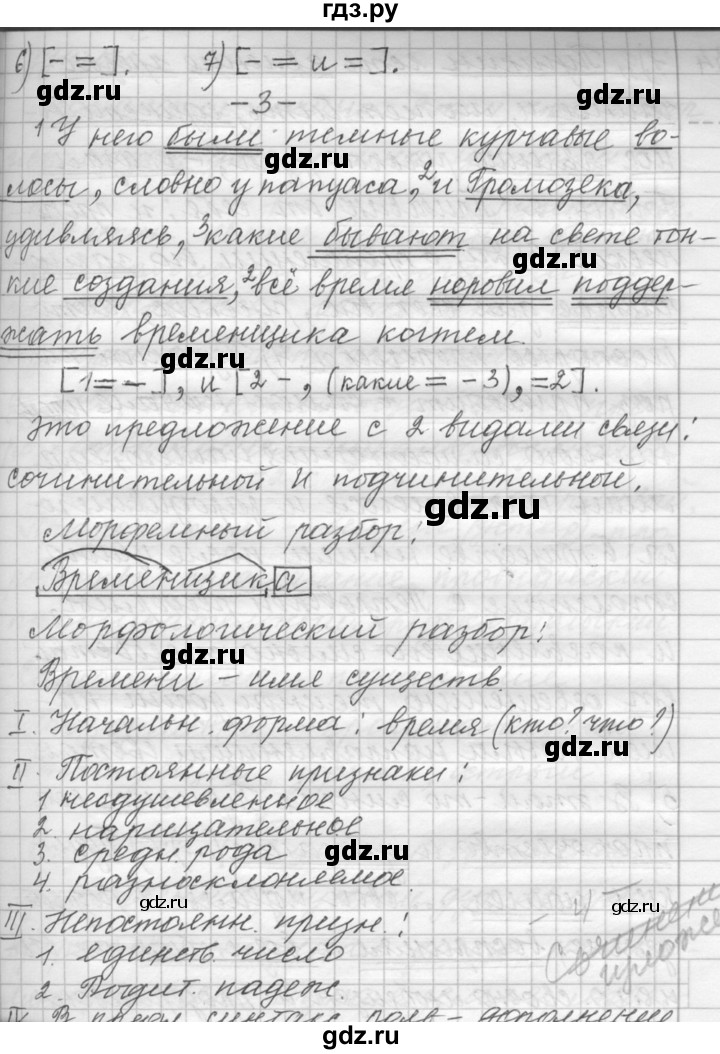 гдз.ру
6) [- =]. 7) [- = и =].
gdz.ru gdz.ru
-3-
gdz.ru
1 У него были темные курчавые во-
лосы, словно у папуаса, 2 и Громозека,
gdz.ru
удивляясь, 3 какие бывают на свете тон-
gdz.ru
кие создания, 2 всё время норовил поддер-
жать временщика когтем.
gdz.ru
[1= -], и [2 -, (какие = -3), =2].
Это предложение с 2 видами связи:
сочинительной и подчинительной.
gdz.ru
Морфемный разбор:
Временщика
Морфологический разбор:
gdz.ru
Времени - имя существ.
I. Начальн. форма: время (кто? что?)
gdz.ru
II. Постоянные признаки:
1 неодушевленное
2. нарицательное
3. средн. рода
gdz.ru
4. разносклоняемое.
gdz.ru gdz.ru
III. Непостоянн. призн.:
1. единств. число
2. Родит. падеж.
IV. В предл. синтакс. роль - дополнение
gdz.ru